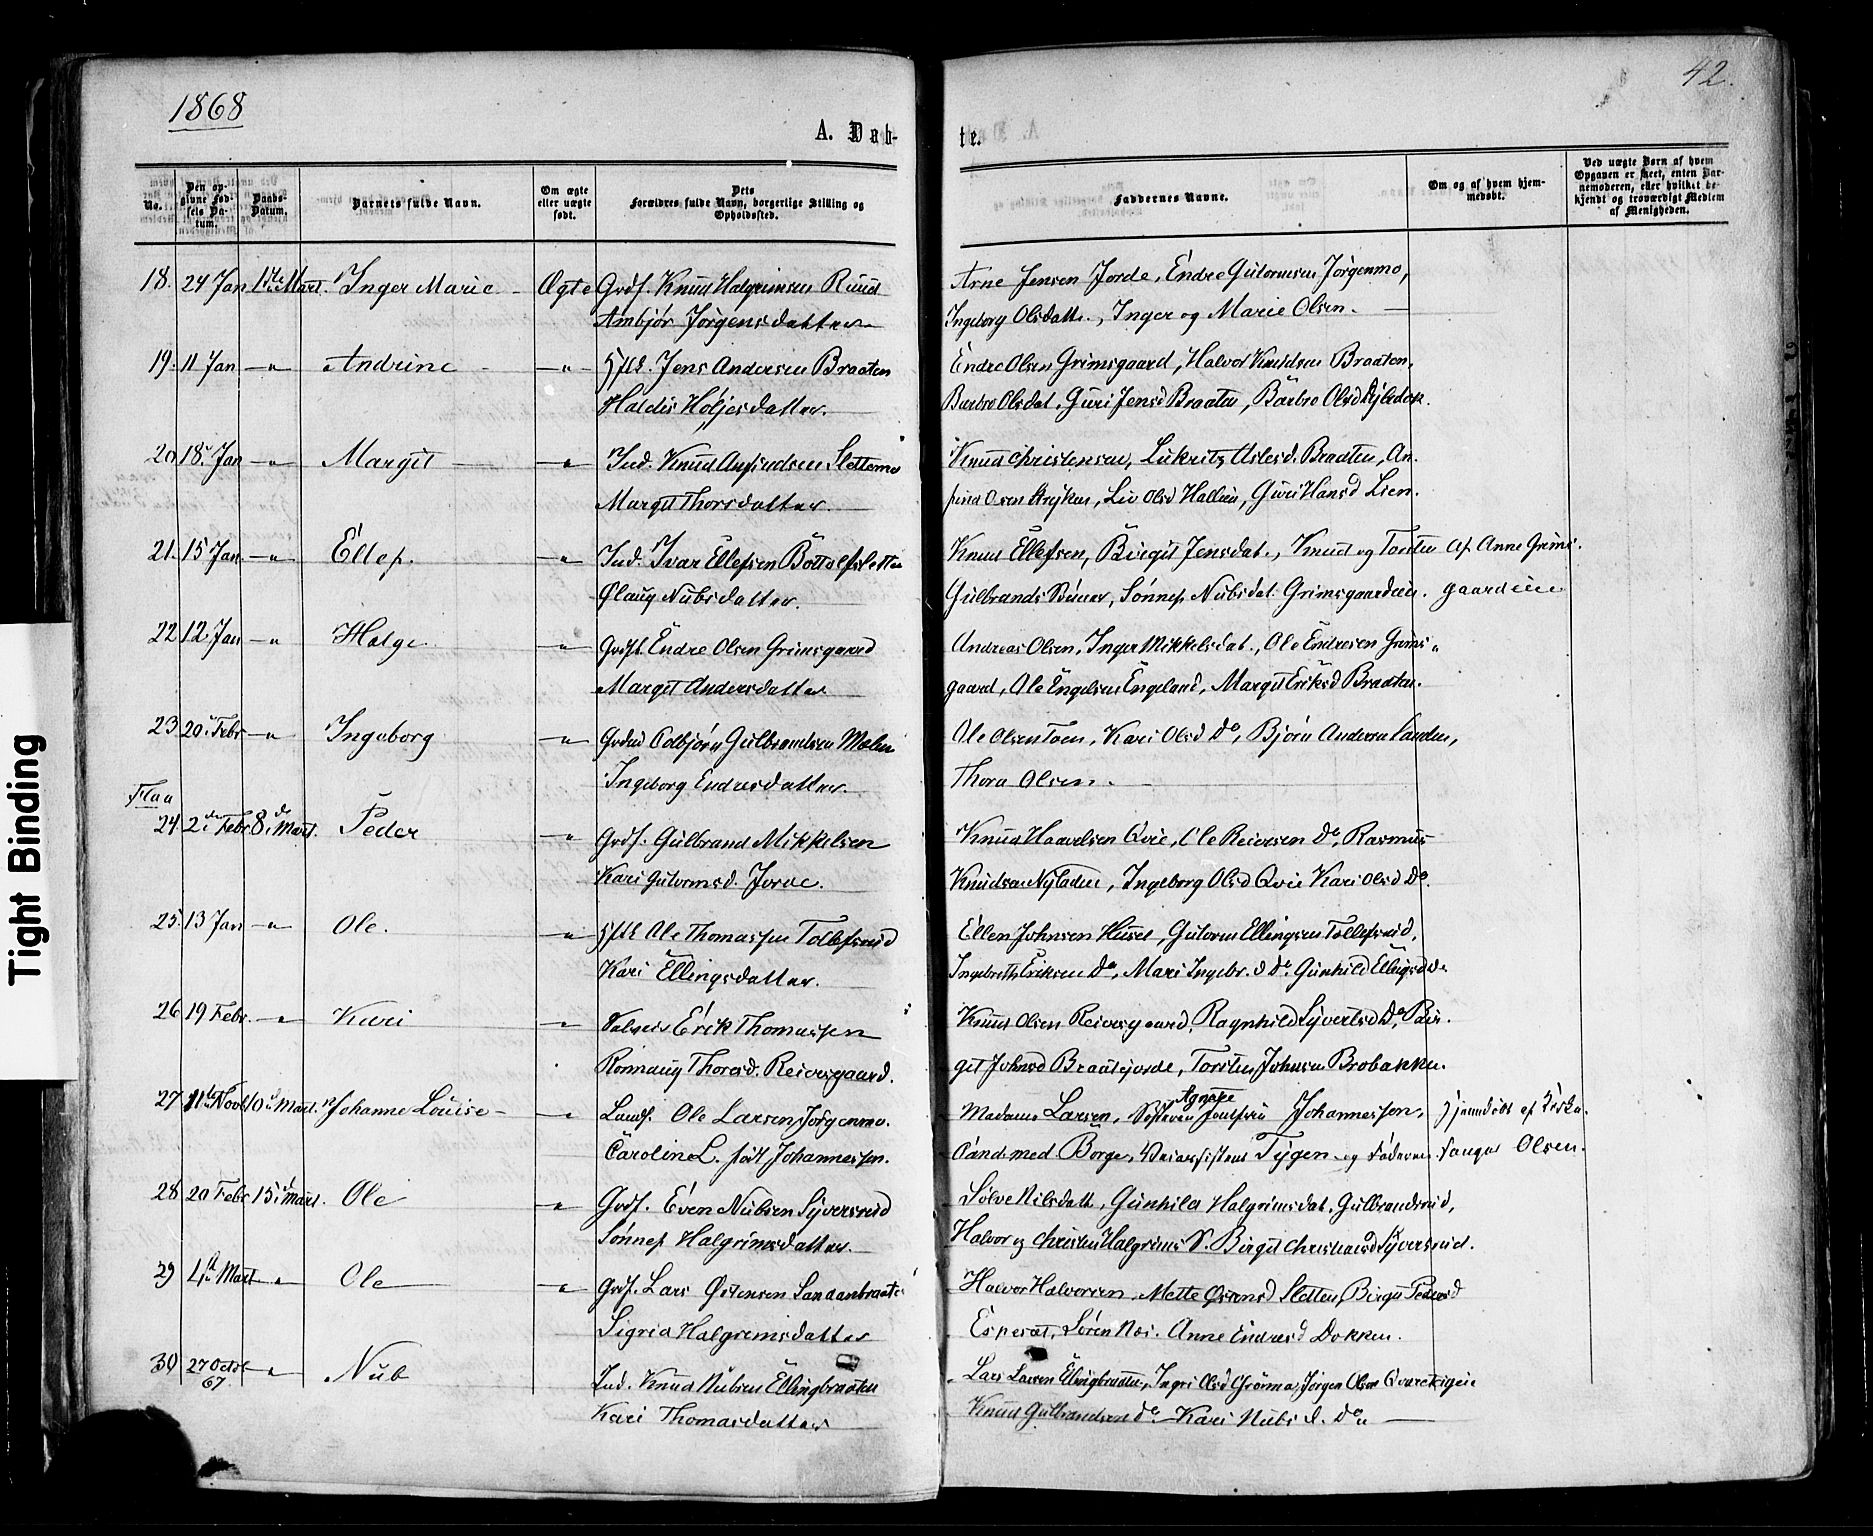 1868
42.
A. Døb-
te.
No.
Den opgivne Fødsels Datum.
Daabs-Datum.
Barnets fulde Navn.
Om ægte eller uægte født.
Dets Forældres fulde Navn, borgerlige Stilling og Opholdssted.
Faddernes Navne.
Om og af hvem hjemmedøbt.
Ved uægte Børn af hvem Opgaven er skeet, enten Barnemoderen, eller hvilket bekjendt og troværdigt Medlem af Menigheden.
18. 24 Jan 1ste Mart. Inger Marie - Ægte Grdf. Knud Halgrimsen Ruud Arne Jensen Jorde, Endre Gutormsen Jørgenmo,
Ambjør Jørgensdatter Ingeborg Olsdatt., Inger og Marie Olsen.
19. 11 Jan -"- Andrine -"- Jens Andersen Braaten Endre Olsen Grimsgaard, Halvor Knudsen Braaten,
Haldis Høljesdatter. Barbro Olsdat, Guri Jensd Braaten, Barbro Olsd
20 18. Jan -"- Margit -"- Ind. Knud Anfindsen Slettemo Knud Christensen, Aslesd. Braaten, An-
Margit Thorsdatter. find Olsen Stryken, Liv Olsd Hallein, Guri Hansd Lien.
21. 15 Jan -"- Ellef. -"- Ind. Ivar Ellefsen Bottolfsletten Knud Ellefsen, Birgit Jensdat., Knud og Torsten af Anne Grims-
ØLaug Nubsdatter. Gulbrands Sønner, Sønnef Nubsdat. Grimsgaardeie. gaardeie
22 12. Jan -"- Helge -"- Grdf. Endre Olsen Grimsgaard Andreas Olsen, Inger Mikkelsdat., Ole Endresen Grims-
Margit Andersdatter gaard, Ole Engelsen Engeland, Margit Eriksd Braaten.
23 20. Febr -"- Ingeborg -"- Colbjørn Gulbrandsen Ole Olsen Toen, Kari Olsd Do, Bjørn Andersen Sanden,
Ingeborg Endresdatter. Thora Olsen.
Flaa
24. 2den Febr 8de Mart. Peder -"- Grdf. Gulbrand Mikkelsen Knud Haavelsen Qvie, Ole Reiersen Do, Rasmus
Kari Gutormsd. Jorde. Knudsen Ingeborg Olsd Qvie Kari Olsd Do.
25. 13 Jan -"- Ole. -"- Ole Thomassen Tollefsrud Ellen Johnsen Guttorm Ellingsen Tollefsrud,
Kari Ellingsdatter. Ingebreth Eriksen Do, Mari Ingebr.d Do Gunhild Ellingsd Do
26 19 Febr. -"- Kari -"- Erik Thomassen Knud Olsen Reiersgaard, Ragnhild Syvertsd Do, Bir-
Rønnaug Thorsd. Reiersgaard. git Johnsd Torsten Johnsen Brobakken.
27 11te Novb 10de Mart. Johanne Louise -"- Landh. Ole Larsen Jørgenmo. Madame Larsen, Agnape Johannessen, hjemdøbt af Kirke-
Caroline L. født Johannessen. Cand. med Borge, Tygen og Faderen. sanger Olsen.
28 20 Febr 15de Mart. Ole -"- Grdf. Even Nubsen Syversrud Sølve Nilsdatt, Gunhild Halgrimsdat. Gulbrandsrud,
Sønnef Halgrimsdatter. Halvor og Christen Halgrims S. Birgit Christiansd Syversrud.
29 4de Mart -"- Ole -"- Grdf. Lars Østensen Sandanbraaten Halvor Halvorsen. Mette Sletten, Birgit Pedersd
Sigrid Halgrimsdatter Espeset, Søren Næs. Anne Endresd Dokken.
30 27 Octbr 67. -"- Nub Ind. Knud Nubsen Ellingbraaten Lars Larsen Ellingbraaten, Ingri Olsd Jørgen Olsen
Kari Thomasdatter Knud Gulbrandsen Do. Kari Nubsd. Do.
Tight Binding